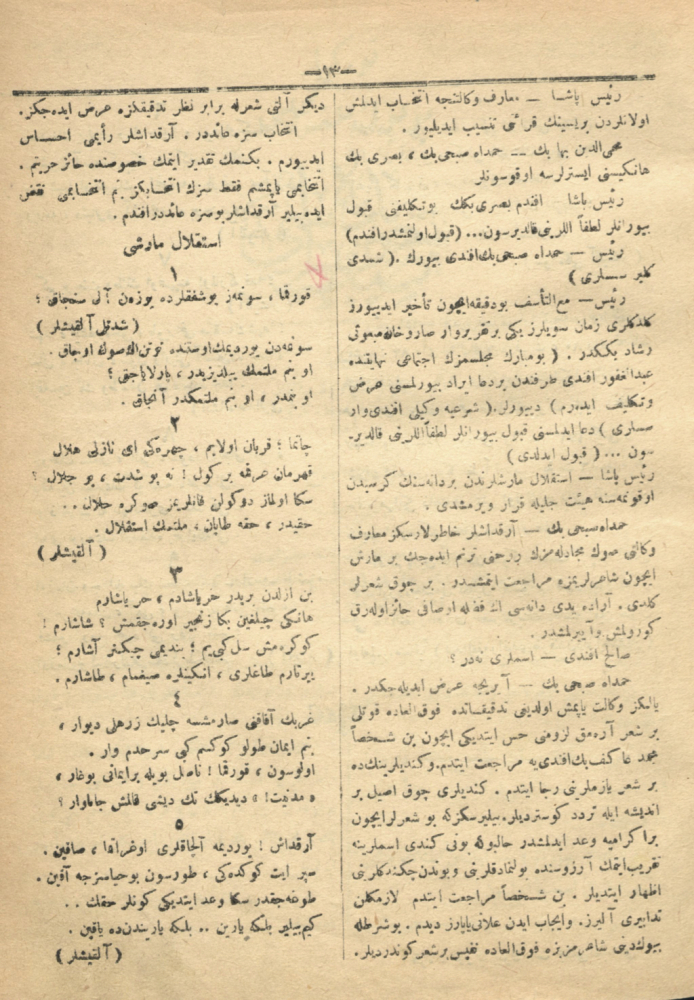 —١٣—
رئيس پاشا — معارف وكالتنجه انتخاب ايدلمش
اولانلردن بريسينك قرائتى تنسيب ايديليور .
محى‌الدين بها بك — حمدالله صبحى بك ، بصرى بك
هانكيسنى ايسترلرسه اوقوسونلر
رئيس پاشا افندم بصرى بكك بوتكليفنى قبول
بيورانلر لطفاً اللرينى قالديرسون... (قبول اولنمشدر افندم)
رئيس — حمدالله صبحى بك افندى بيورك . ( شمدى
كلير سسلرى )
رئيس — مع‌التأسف بودقيقه ايچون تأخير ايدييورز
كلدكلرى زمان سويلرز يكى برتقرير وار صاروخان مبعوثى
رشاد بككدر . ( بو مبارك مجلسمزك اجتماعى نهايتنده
عبدالغفور افندى طرفندن بر دعا ايراد بيورلمسنى عرض
وتكليف ايدرم ) دييورلر . ( شرعيه وكيلى افندى وار
سسلرى ) دعا ايدلمسنى قبول بيورانلر لطفاً اللرينى قالدير-
سون ... ( قبول ايدلدى )
رئيس پاشا — استقلال مارشلرندن بردانه‌سنك كرسيدن
اوقونمه‌سنه هيئت جليله قرار ويرمشدى .
حمدالله صبحى بك — آرقداشلر خاطرلارسكز معارف
وكالتى صوك مجادله‌مزك روحنى ترنم ايده‌جك بر مارش
ايچون شاعرلريمزه مراجعت ايتمشدر . بر چوق شعرلر
كلدى . آراده يدى دانه‌سى اك فضله اوصافى حائز اوله‌رق
كورولمش و آييرلمشدر .
صالح افندى — اسملرى نه‌در ؟
حمدالله صبحى بك — آيريجه عرض ايديله‌جكدر .
يالكز وكالت ياپمش اولدينى تدقيقاتده فوق‌العاده قوتلى
بر شعر آرامق لزومنى حس ايتديكى ايچون بن شخصاً
محمد عاكف بك افندى‌يه مراجعت ايتدم . وكنديلرينك ده
بر شعر يازملرينى رجا ايتدم . كنديلرى چوق اصيل بر
انديشه ايله تردد كوسترديلر . بيليرسكز كه بو شعرلر ايچون
براكراميه وعد ايدلمشدر حالبوكه بونى كندى اسملرينه
تقريب ايتمك آرزوسنده بولنمادقلرينى و بوندن چكيندكلرينى
اظهار ايتديلر . بن شخصاً مراجعت ايتدم لازمكلن
تدابيرى آليرز . وايجاب ايدن علانى ياپارز ديدم . بوشرطله
بيوك دينى شاعرمز بزه فوق‌العاده نفيس بر شعر كوندرديلر .
ديكر آلتى شعرله برابر نظر تدقيقكزه عرض ايده‌جكز .
انتخاب سزه عائددر . آرقداشلر رأيمى احساس
ايدييورم . بكنمك تقدير ايتمك خصوصنده حائز حريتم .
انتخابمى ياپمشم فقط سزك انتخابكز بم انتخابمى نقض
ايده بيلير آرقداشلر بو سزه عائددر افندم .
استقلال مارشى
١
قورقما ، سونمز بوشفقلرده يوزن آل سنجاق ؛
( شدتلى آلقيشلر )
سونمه‌دن يورديمك اوستنده توتن اك صوك اوجاق .
او بنم ملتمك ييلديزيدر ، پارلاياجق ؛
او بنمدر ، او بنم ملتمكدر آنجاق .
٢
چاتما ؛ قربان اولايم ، چهره‌كى اى نازلى هلال
قهرمان عرقمه بر كول ! نه بو شدت ، بو جلال ؟
سكا اولماز دوكولن قانلريمز صوكره حلال . .
حقيدر ، حقه طاپان ، ملتمك استقلال .
( آلقيشلر )
٣
بن ازلدن بريدر حر ياشادم ، حر ياشارم
هانكى چيلغين بكا زنجير اوره‌جقمش ؟ شاشارم !
كوكره‌مش سل كبى‌يم ؛ بنديمى چيكنر آشارم ؛
ييرتارم طاغلرى ، انكينلره صيغمام ، طاشارم .
٤
غربك آفاقنى صارمشسه چليك زرهلى ديوار ،
بنم ايمان طولو كوكسم كبى سرحدم وار .
اولوسون ، قورقما ! ناصل بويله برايمانى بوغار ،
« مدنيت ! » ديديكك تك ديشى قالمش جاناوار ؟
٥
آرقداش ! يورديمه آلچاقلرى اوغراتما ، صاقين .
سپر ايت كوكده‌كى ، طورسون بوحياسزجه آقين .
طوغه‌جقدر سكا وعد ايتديكى كونلر حقك . .
كيم بيلير بلكه يارين .. بلكه ياريندن ده ياقين .
( آلقيشلر )